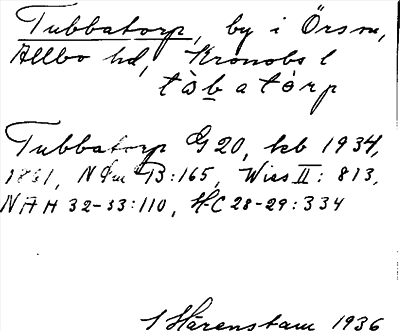 Tubbatorp, by i Örsm,
Allbo hd, Kronobs l
tàbatórp
Tubbatorp G 20, kb 1934,
1861, N B:165, Wies II: 813,
NAH 32-33:110, H-C 28-29:334
S Härenstam 1936